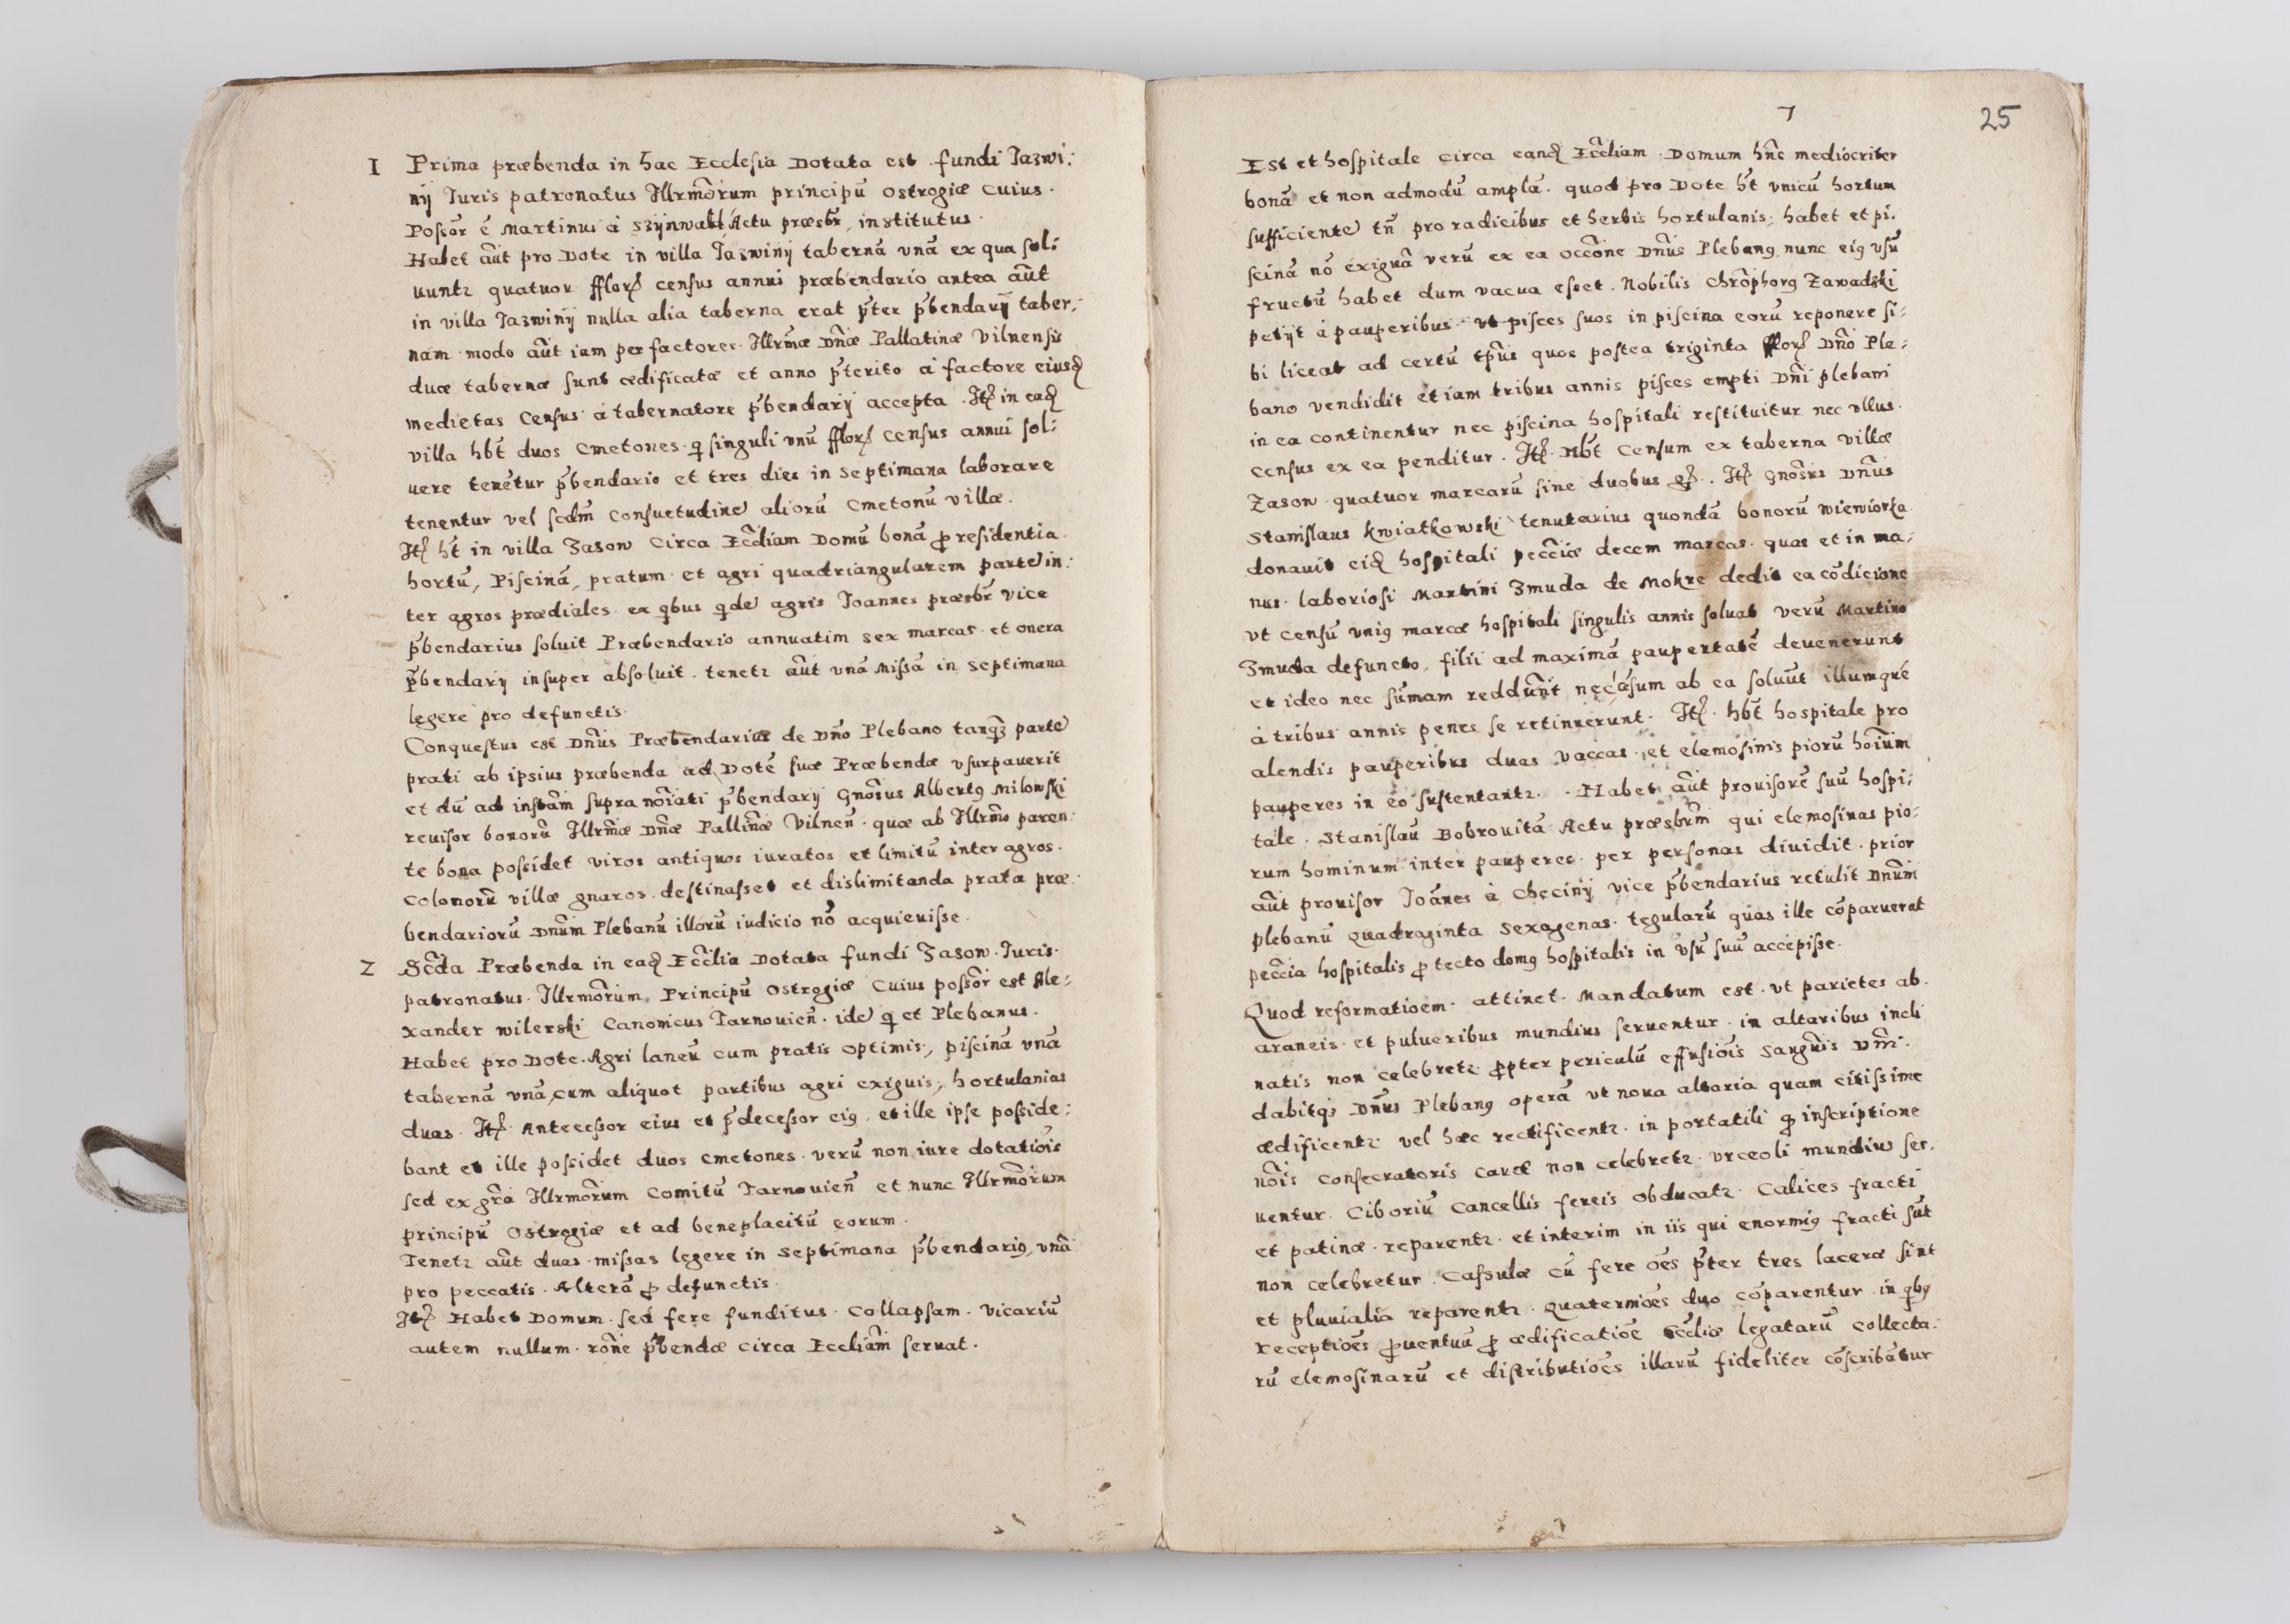 1 Prima præbenda in hac Ecclesia Dotata est fundi Jazwi:
nÿ Juris patronatus Illrmõrum principũ Ostrogiæ Cuius.
Possõr ẽ Martinus à Szÿnwałt, Actu præsbr̃, institutus.
Habet aũt pro Dote in villa Jazwinÿ tabernã vnã ex qua sol:
uuntz quatuor fflor census annui præbendario antea aũt
in villa Jazwinÿ nulla alia taberna erat p̃ter p̃bendarÿ taber:
nam. modo aũt iam per factores Illrm̃æ Dñæ Pallatinæ Vilnensis
duæ tabernæ sunt ædificatæ et anno p̃terito à factore eiusd
medietas Census à tabernatore p̃bendarÿ accepta. It in ead
villa hb̃t duos Cmetones. q singuli vnũ fflor census annui sol:
uere tenẽtur p̃bendario et tres dies in septimana laborare
tenentur vel scdm̃ Consuetudinẽ aliorũ Cmetonũ villæ.
It h̃t in villa Zason Circa Eccl̃iam Domũ bonã p residentia.
hortũ, Piscinã, pratum et agri quadriangularem partẽ in:
ter agros prædiales. ex qbus qdẽ agris Joannes præsbr̃ vice
p̃bendarius soluit Præbendario annuatim sex marcas et onera
p̃bendarÿ insuper absoluit. tenetz aũt vnã Missã in septimana
legere pro defunctis.
Conquestus est Dñus Præbendarius de Dño Plebano tanqz partẽ
prati ab ipsius præbenda ad Dotẽ suæ Præbendæ vsurpauerit
et dũ ad instãm supra noĩati p̃bendarÿ Gnõsus Albertꝯ Milowski
reuisor bonorũ Illrm̃æ Dñæ Pallinæ Vilneñ. quæ ab Illrm̃o paren:
te bona possidet viros antiquos iuratos et limitũ inter agros.
Colonorũ villæ gnaros. destinasset et dislimitanda prata præ:
bendariorũ Dñum Plebanũ illorũ iudicio nõ acquieuisse.
2 Scd̃a Præbenda in ead Eccl̃ia Dotata fundi Zason. Juris.
patronatus. Illrmõrum Principũ Ostrogiæ Cuius possõr est Ale:
xander wilerski Canonicus Tarnouieñ. idẽ q et Plebanus.
Habet pro Dote. Agri laneũ cum pratis optimis, piscinã vnã
tabernã vnã, cum aliquot partibus agri exiguis, hortulanias
duas. It Antecessor eius et p̃decessor eiꝯ et ille ipse posside:
bant et ille possidet duos Cmetones. verũ non iure dotatiõis
sed ex gr̃a Illrmõrum Comitũ Tarnouieñ et nunc Illrmõrum
principũ Ostrogiæ et ad beneplacitũ eorum.
Tenetz aũt duas missas legere in septimana p̃bendariꝯ, vnã
pro peccatis. Alterã p defunctis.
It Habet Domum. sed fere funditus Collapsam. vicariũ
autem nullum. rõne p̃bendæ circa Eccliãm seruat.
7
25
Est et hospitale circa eand Eccl̃iam Domum hñs mediocriter
bonã et non admodũ amplã. quod pro Dote h̃t vnicũ hortum
sufficientẽ tñ pro radicibus et herbis hortulanis, habet et pi:
scinã nõ exiguã verũ ex ea occõne Dñus Plebanꝯ nunc eiꝯ vsũ
fructũ habet dum vacua esset. Nobilis Chrõphorꝯ Zawadski
petÿt à pauperibus vt pisces suos in piscina eorũ reponere si:
bi liceat ad certũ tp̃us quos postea triginta fflor Dño Ple:
bano vendidit etiam tribus annis pisces empti Dñi plebani
in ea continentur nec piscina hospitali restituitur nec vllus.
Census ex ea penditur. It Hb̃t Censum ex taberna villæ
Zason quatuor marcarũ sine duobus g. It Gnosr̃us Dñus
Stanislaus Kwiatkowski tenutarius quondã bonorũ wiewiorka
donauit eid hospitali pecc̃iæ decem marcas. quas et in ma:
nus laboriosi Martini Zmuda de Mokre dedit ea cõdicione
vt Censũ vniꝯ marcæ hospitali singulis annis soluat verũ Martino
Zmuda defuncto, filii ad maximã paupertatẽ deuenerunt
et ideo nec sũmam reddũnt nec cẽsum ab ea soluũt illumqué
à tribus annis penes se retinuerunt. It hb̃t hospitale pro
alendis pauperibus duas vaccas, et elemosinis piorũ hoĩum
pauperes in eo sustentantz. Habet aũt prouisorẽ suũ hospi:
tale. Stanislaũ Bobrouitã Actu præsbrm̃ qui elemosinas pio:
rum hominum inter pauperes per personas diuidit. prior
aũt prouisor Joãnes à Chęcinÿ vice p̃bendarius retulit Dñum
plebanũ Quadraginta Sexagenas tegularũ quas ille cõparuerat
pecc̃ia hospitalis p tecto domꝯ hospitalis in vsũ suũ accepisse.
Quod reformatioem attinet. Mandatum est vt parietes ab.
araneis et pulueribus mundius seruentur. in altaribus incli
natis non celebretz ppter periculũ effusiõis Sanguĩs Dm̃i.
dabitqz Dñus Plebanꝯ operã vt noua altaria quam citissime
ædificentz vel hæc rectificentz. in portatili p inscriptione
nõis Consecratoris caret non celebretz. vrceoli mundius ser:
uentur. Ciboriũ Cancellis fereis obducatz. Calices fracti
et patinæ reparentz. et interim in iis qui enormiꝯ fracti sũt
non celebretur. Cassulæ cũ fere oẽs p̃ter tres laceræ sint
et pluuialia reparentz. Quaterniões duo cõparentur in qbꝯ
receptiões puentuũ p ædificatiõe Eccl̃iæ legatarũ Collecta:
rũ elemosinarũ et distributiões illarũ fideliter cõscribãtur